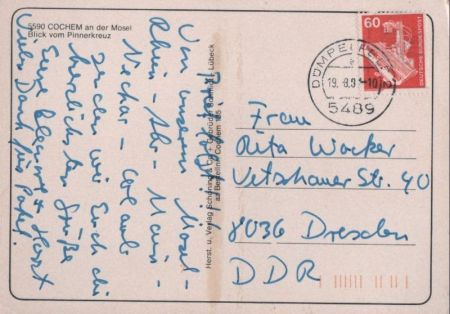 5590 COCHEM an der Mosel
Blick vom Pinnerkreuz
Von unserem Mosel-
Rhein - Ahr - Main -
Neckar -
senden wir Euch die
herzlichsten Grüße
Eure
+ Horst
Vielen Dank für Paket.
Herst. u. Verlag Schöning & Co + Gebrüder Schmidt, Lübeck
60
DEUTSCHE BUNDESPOST
19. 8.
5489
Frau
Rita Wacker
Vetschauer Str. 40
8036 Dresden
DDR